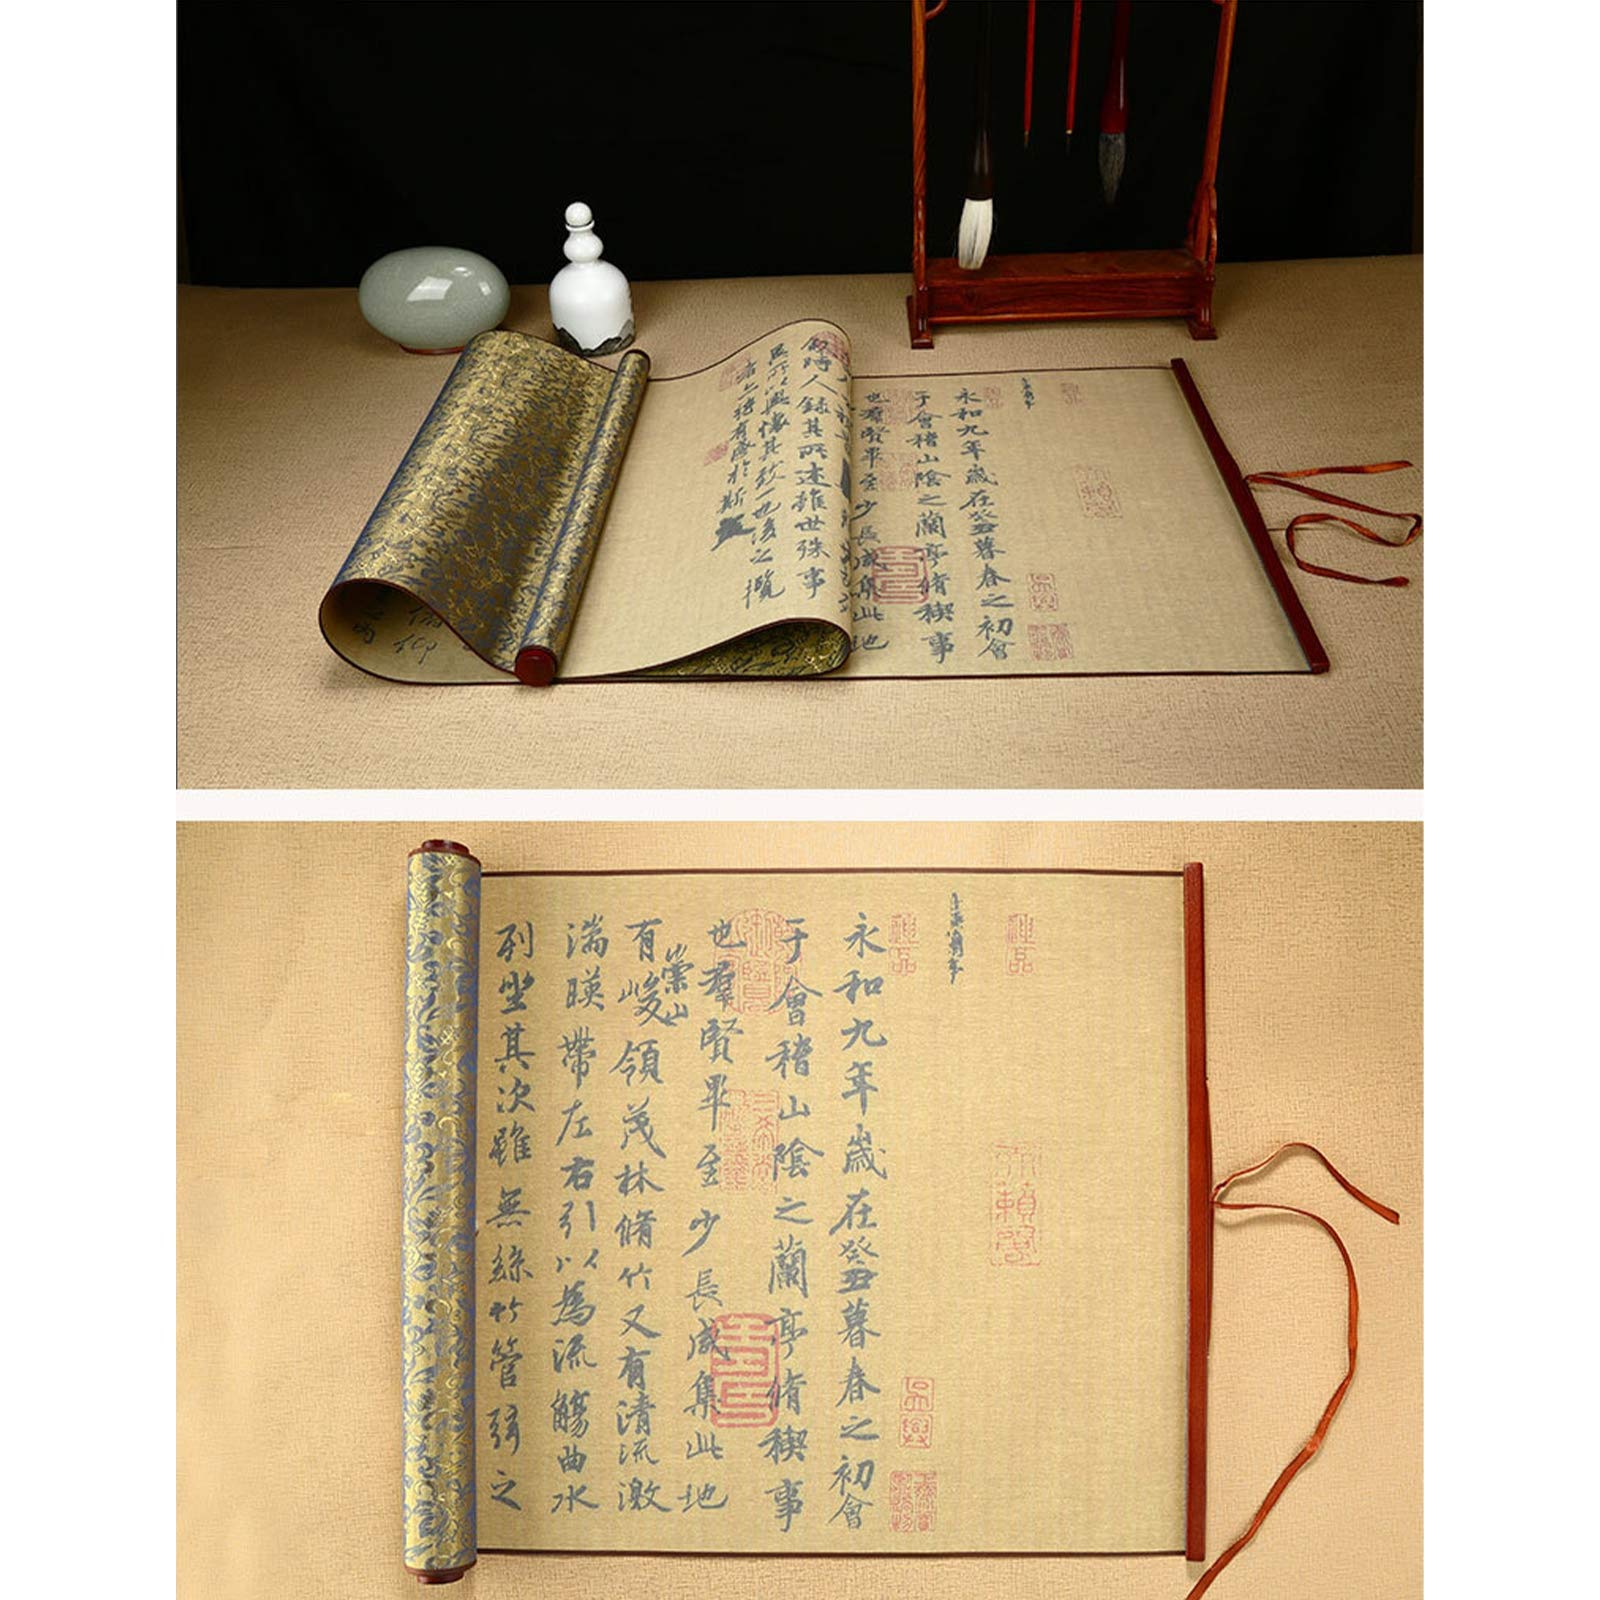 敘時人錄其所述雖世殊事
異所以興懷其致一也後之攬
者亦將有感於斯文
永和九年歲在癸丑暮春之初會
于會稽山陰之蘭亭脩禊事
也羣賢畢至少長咸集此地
永和九年歲在癸丑暮春之初會
于會稽山陰之蘭亭脩禊事
也羣賢畢至少長咸集此地
有崇山峻領茂林脩竹又有清流激
湍暎帶左右引以為流觴曲水
列坐其次雖無絲竹管弦之